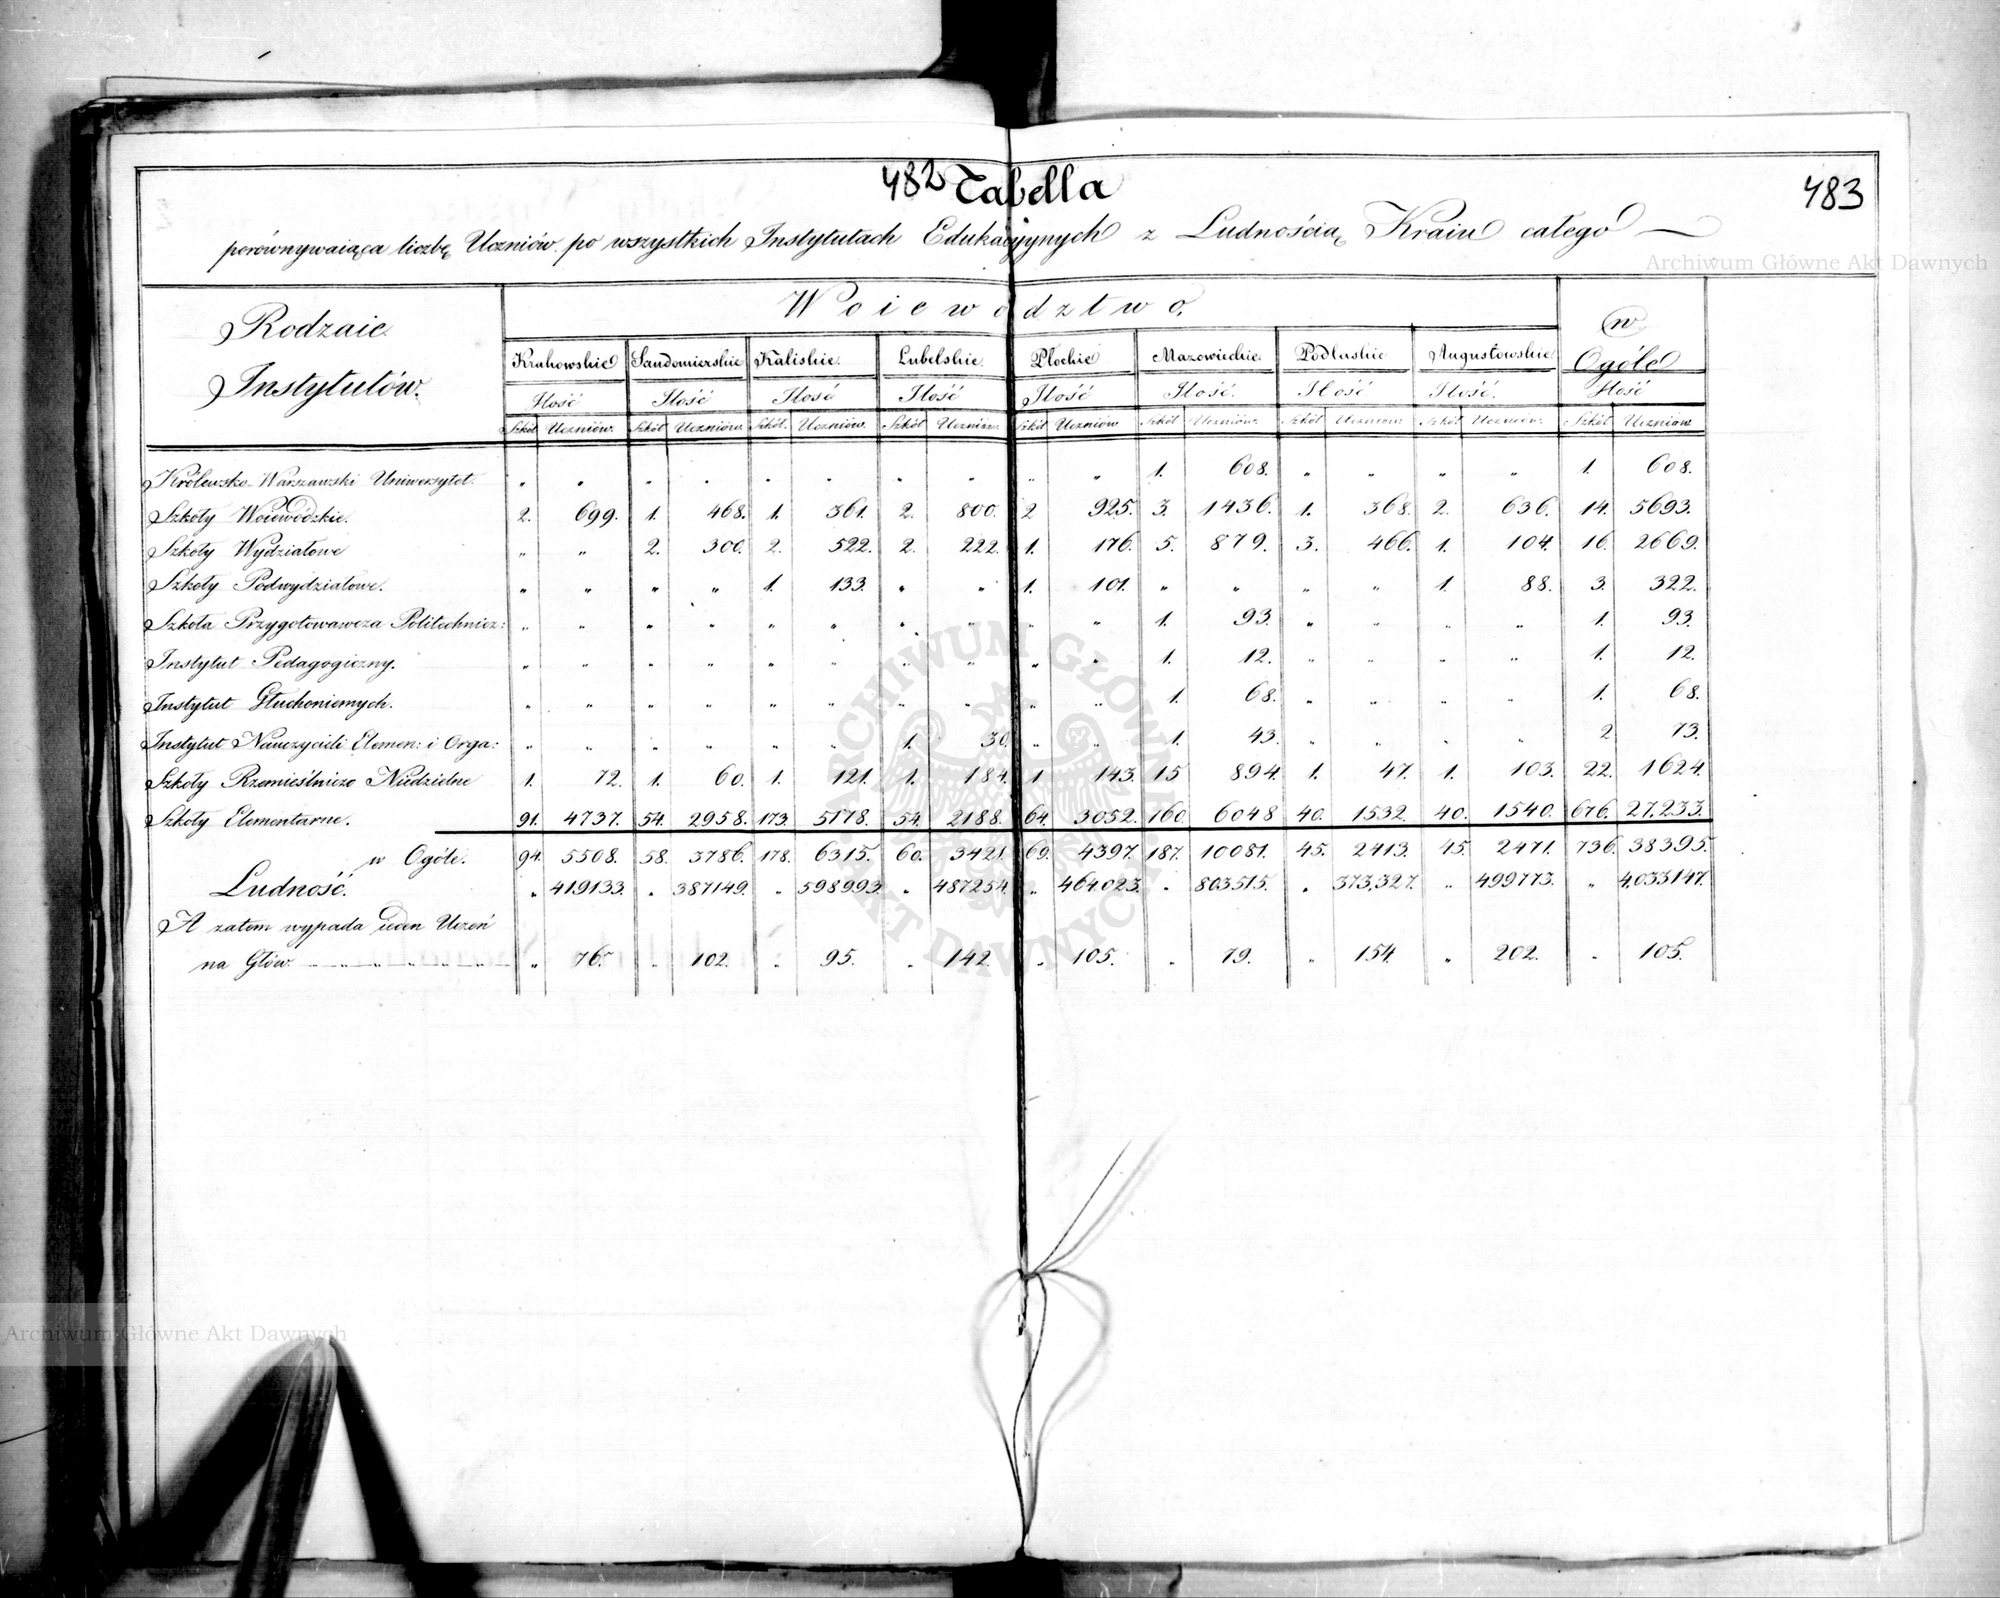 482 Tabella 483
porównywaiąca liczbę Uczniów po wszystkich Instytutach Edukacyjnych z Ludnością Kraiu całego
Archiwum Główne Akt Dawnych
Rodzaie Instytutów. Woiewództwo. w Ogóle
Krakowskie Sandomierskie Kaliskie. Lubelskie. Płockie Mazowieckie. Podlaskie Augustowskie
Ilość Ilość Ilość Ilość Ilość Ilość. Ilość Ilość. Ilość
Szkół Uczniów. Szkół Uczniów. Szkół. Uczniów. Szkół Uczniów. Szkół Uczniów Szkół Uczniów. Szkół Uczniów Szkół Uczniów. Szkół Uczniów
Królewsko-Warszawski Uniwersytet. „ „ „ „ „ „ „ „ „ „ 1. 608. „ „ „ „ 1. 608.
Szkoły Woiewódzkie. 2. 699. 1. 468. 1. 361. 2. 800. 2 925. 3. 1436. 1. 368. 2. 636. 14. 5693.
Szkoły Wydziałowe „ „ 2. 300. 2. 522. 2. 222. 1. 176. 5. 879. 3. 466. 1. 104. 16. 2669.
Szkoły Podwydziałowe. „ „ „ „ 1. 133. „ „ 1. 101. „ „ „ „ 1. 88. 3. 322.
Szkoła Przygotowawcza Politechnicz: „ „ „ „ „ „ „ „ „ „ 1. 93. „ „ „ „ 1. 93.
Instytut Pedagogiczny. „ „ „ „ „ „ „ „ „ „ 1. 12. „ „ „ „ 1. 12.
Instytut Głuchoniemych. „ „ „ „ „ „ „ „ „ „ 1. 68. „ „ „ „ 1. 68.
Instytut Nauczycieli Elemen: i Orga: „ „ „ „ „ „ 1. 30. „ „ 1. 43. „ „ „ „ 2 73.
Szkoły Rzemieślniczo Niedzielne 1. 72. 1. 60. 1. 121. 1. 184. 1 143. 15 894. 1. 47. 1. 103. 22. 1624.
Szkoły Elementarne. 91. 4737. 54. 2958. 173. 5178. 54. 2188. 64. 3052. 160. 6048 40. 1532. 40. 1540. 676. 27.233.
w Ogóle. 94. 5508. 58. 3786. 178. 6315. 60. 3421. 69. 4397. 187. 10081. 45. 2413. 45. 2471. 736. 38395.
Ludność. „ 419133. „ 387149. „ 598993. „ 487254. „ 464023. „ 803515. „ 373,327. „ 499773. „ 4,033147.
A zatem wypada ieden Uczeń
na Głów. „ 76. „ 102. „ 95. „ 142. „ 105. „ 79. „ 154. „ 202. „ 105.
ARCHIWUM GŁÓWNE AKT DAWNYCH
Archiwum Główne Akt Dawnych